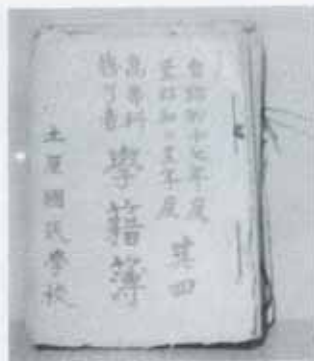 自昭和十七年度 其四
至昭和二三年度
高等科
修了者
學籍簿
土屋國民學校